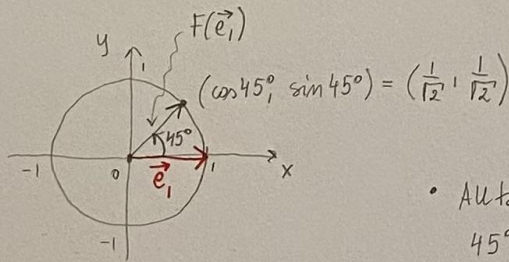 F(e⃗₁)
y
1
(cos 45°, sin 45°) = (1/√2, 1/√2)
45°
-1
0
e⃗₁
1
x
-1
•
45°